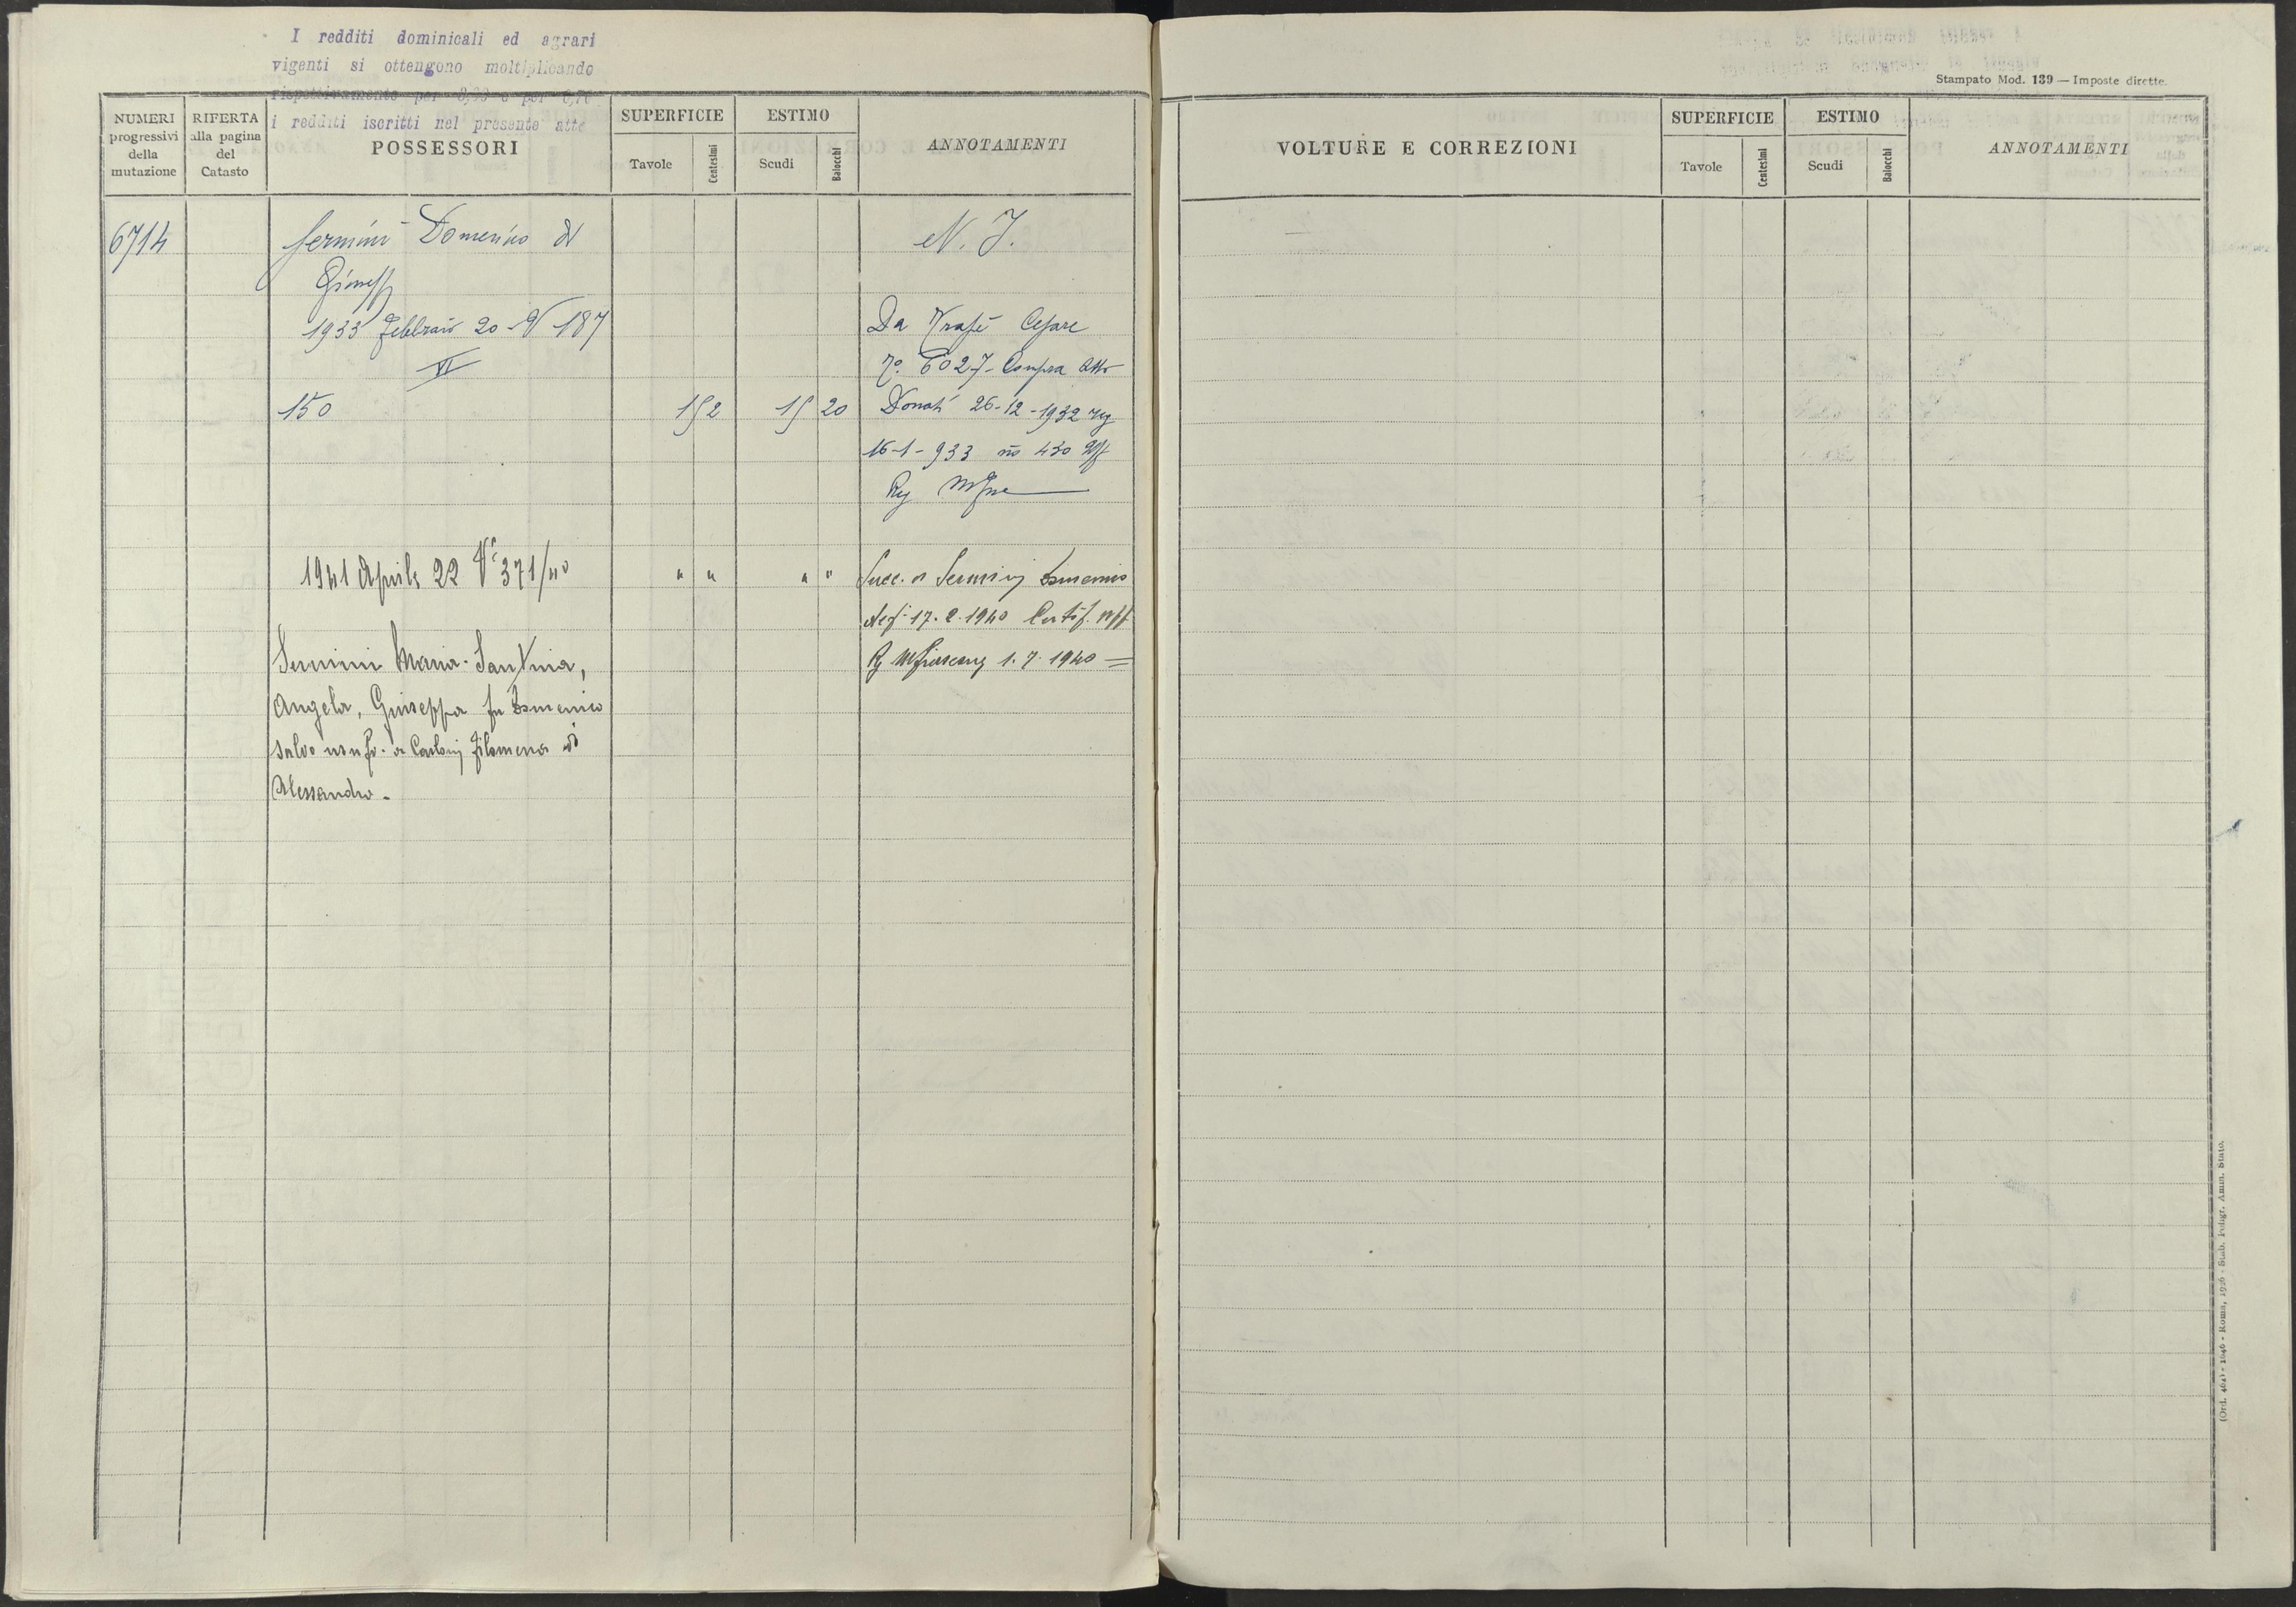 I redditi dominicali ed agrari
vigenti si ottengono moltiplicando
rispettivamente per e per
i redditi iscritti nel presente atto
Stampato Mod. 139 — Imposte dirette.
NUMERI progressivi della mutazione
RIFERTA alla pagina del Catasto
POSSESSORI
SUPERFICIE
Tavole
Centesimi
ESTIMO
Scudi
Baiocchi
ANNOTAMENTI
VOLTURE E CORREZIONI
SUPERFICIE
Tavole
Centesimi
ESTIMO
Scudi
Baiocchi
ANNOTAMENTI
6714 Sermini Domenico di N. I.
Giuseppe
1933 Febbraio 20 - V 187 Da Cesare
VI n.° 6027 - Compra Atto
150 152 15 20 Donati 26-12-1932 reg
16-1-933 no 430 Uff
Reg
1941 Aprile 22 V 371/40 " " " " Succ. a Sermini Domenico
17.2.1940 Certif. Uff
Sermini Maria-Santina, 1.7.1940 =
Angela, Giuseppa fu Domenico
salvo usufr. a Carloni Filomena di
Alessandro.
(Ord. 464) - 1646 - Roma, 1926 - Stab. Poligr. Amm. Stato.